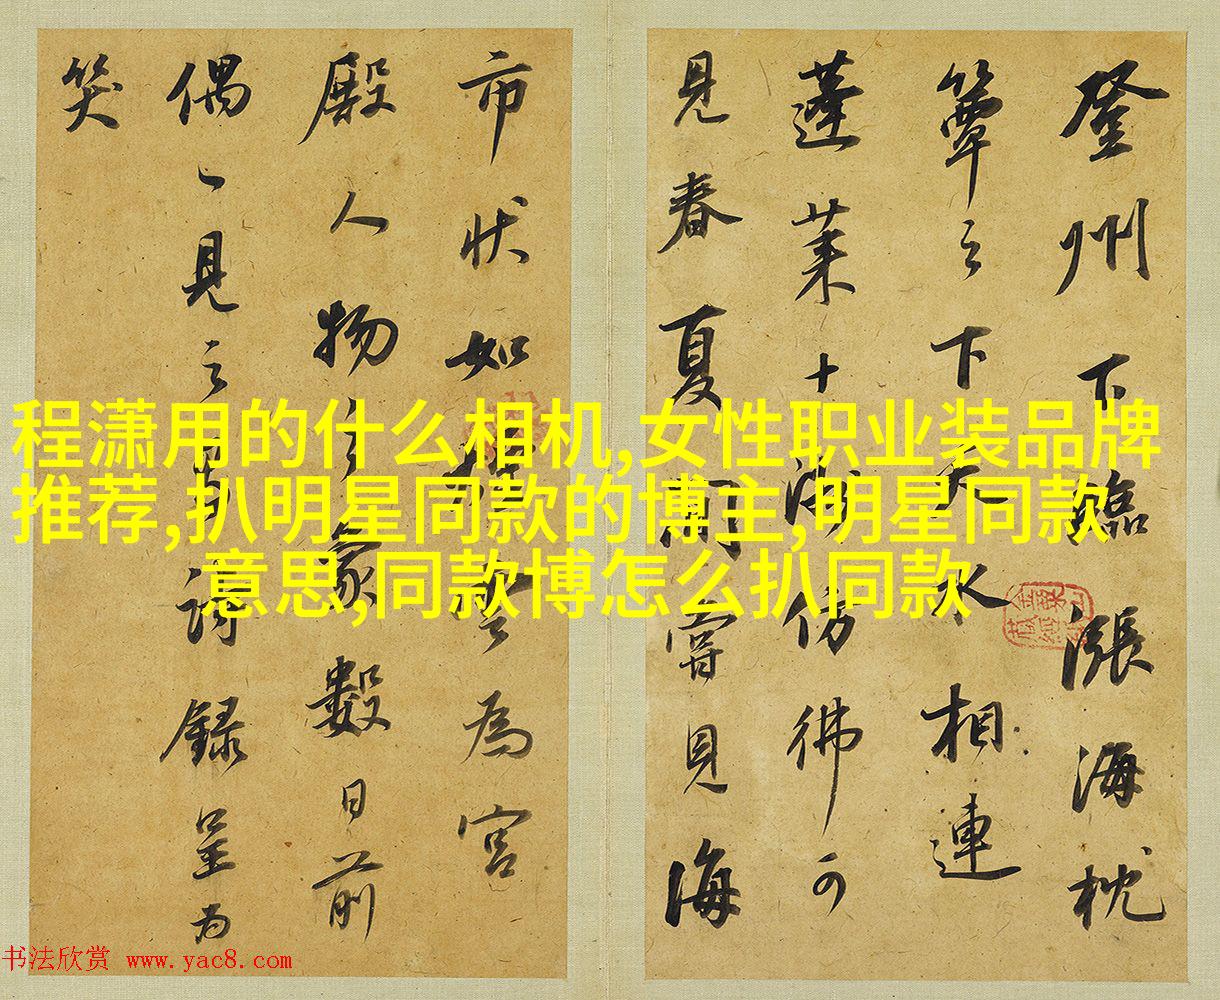 程潇用的什么相机,女性职业装品牌
推荐,扒明星同款的博主,明星同款
意思,同款博怎么扒同款
登州下臨漲海枕
簟之下天水相連
蓬莱十洲仿彿可
見春夏間嘗見海
市状如為宮
殿人物之象數日前
偶一見之詩録呈为
笑
书法欣赏 www.yac8.com